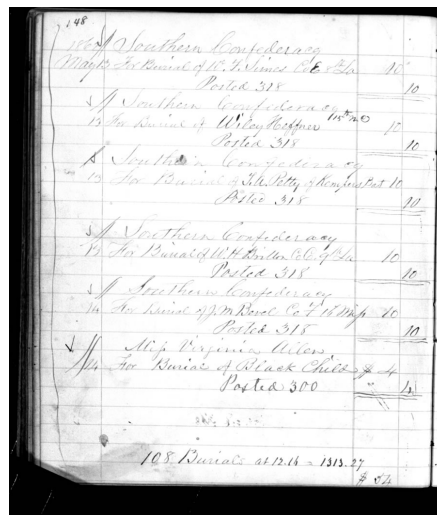 148
Southern Confederacy
May 13 For Burial of W. T. Simes Co E 8th La 10
Posted 318 10
Southern Confederacy
13 For Burial of Wiley Hoffner 10
Posted 318 10
Southern Confederacy
13 For Burial of T.A. Petty of 10
Posted 318 10
Southern Confederacy
13 For Burial of W.H. Co C 9th La 10
Posted 318 10
Southern Confederacy
14 For Burial of J.M. Co F 16 Miss 10
Posted 318 10
Miss Virginia
14 For Burial of Black Child $ 4
Posted 300 4
108 Burials at 12.16 = 1313.27
$ 54